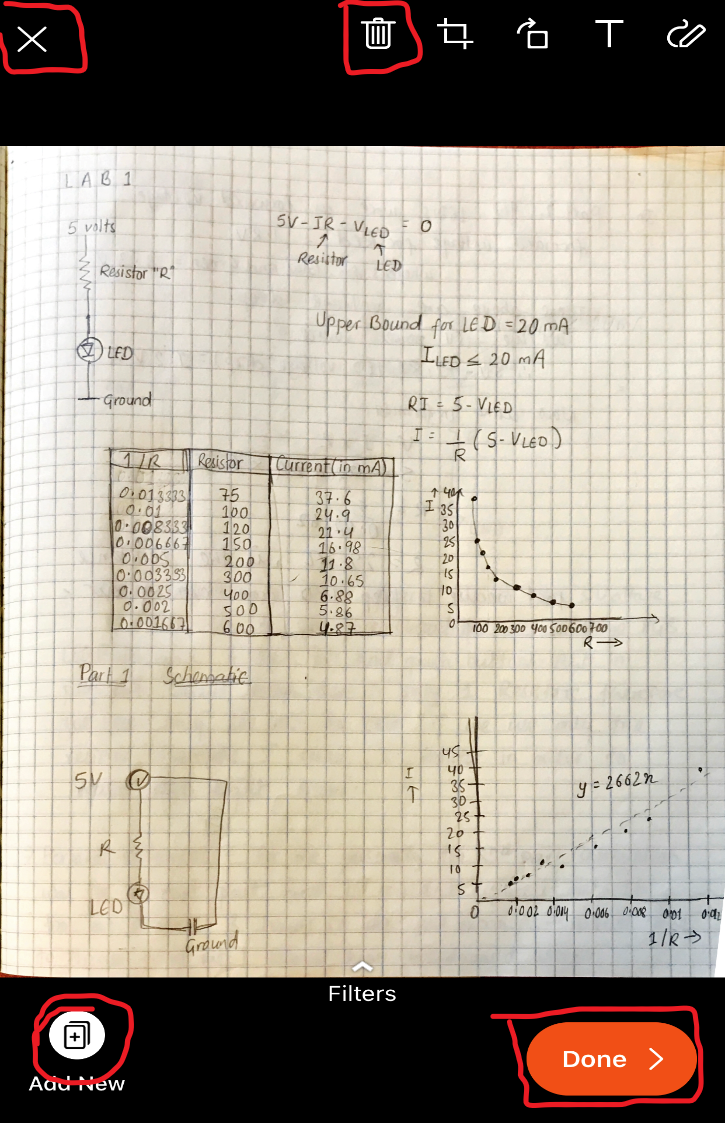 T
LAB 1
5 volts
5V - IR - VLED = 0
Resistor
LED
Resistor "R"
Upper Bound for LED = 20 mA
LED
ILED ≤ 20 mA
Ground
RI = 5 - VLED
I = 1/R (5 - VLED)
1/R Resistor Current (in mA)
0.013333 75 37.6
0.01 100 24.9
0.008333 120 21.4
0.006667 150 16.98
0.005 200 11.8
0.003333 300 10.65
0.0025 400 6.88
0.002 500 5.86
0.001667 600 4.87
↑ 40
I 35
30
25
20
15
10
5
0
100 200 300 400 500 600 700
R →
Part 1 Schematic
45
I 40
↑ 35
30
25
20
15
10
5
y = 2662x
0 0.002 0.004 0.006 0.008 0.01 0.012
1/R →
5V
V
R
LED
Ground
Filters
Add New
Done